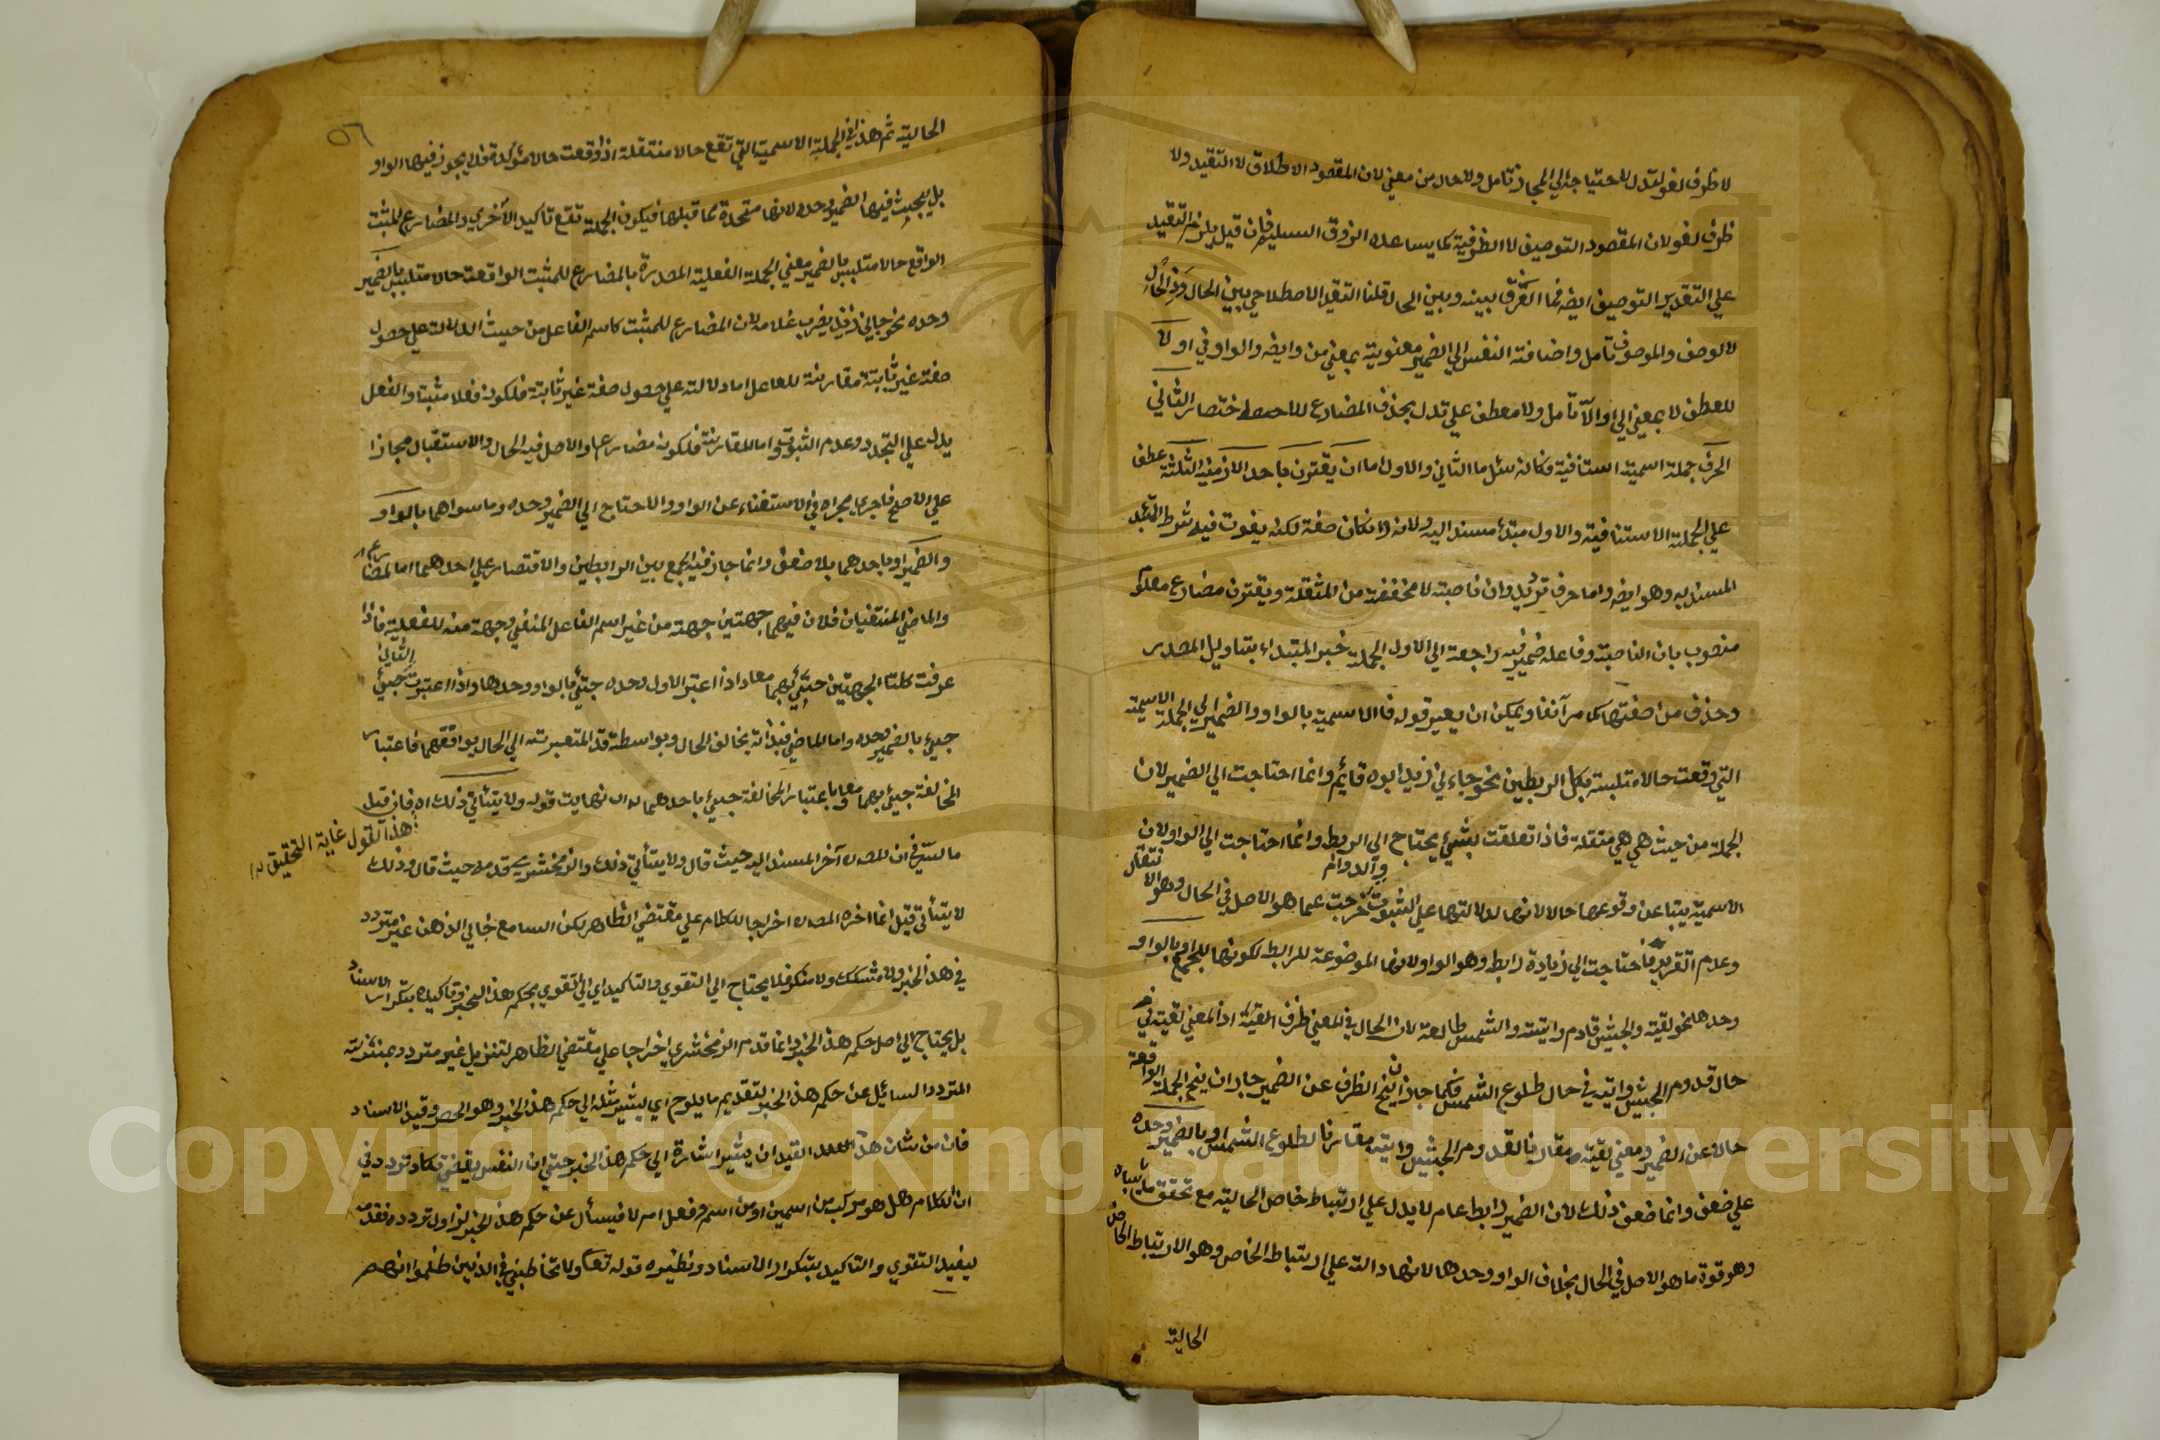 لا ظرف لغو لتدل لاحتياجه الي المجاز تامل ولا حال من معني لان المقصود الاطلاق لا التقييد ولا
ظرف لغو لان المقصود التوصيف لا الظرفية كما يساعده الذوق السليم فان قيل يلزم التقييد
علي التقدير التوصيف ايضه فما الفرق بينه وبين الحال قلنا التقيد الاصطلاحي بين الحال وذي الحال
لا لوصف والموصوف تامل واضافة النفس الي الضمير معنوية بمعني من وايضه والواو في او لا
للعطف لا بمعني الي او الا تامل ولا معطف علي تدل بحذف المضارع للاختصار الثاني
الحرف جملة اسمية استنافية فكانه سئل ما الثاني والاول اما ان يقترن باحد الازمنة الثلثة عطف
علي الجملة الاستنافية والاول مبتدأ مسند اليه ولانه وان كان صفة لكنه يفوت فيه شرط
المسند به وهو ايضه واما حرف ترديد وان ناصبة لا مخففة من المثقلة ويقترن مضارع معلوم
منصوب بان الناصبة وفاعله ضمير فيه راجعة الي الاول الجملة خبر المبتداء بتاويل المصدر
وحذف من صفتها كما مر آنفا ويمكن ان يعبر قوله فالاسمية بالواو والضمير الي الجملة الاسمية
التي وقعت حالا متلبسة بكل الربطين نحو جاءني زيد ابوه قائم وانما احتاجت الي الضمير لان
الجملة من حيث هي هي متقلة فاذا تعلقت بشيئ يحتاج الي الربط وانما احتاجت الي الواو لان
والدوام
الاسمية يتباعن وقوعها حالا لانها لدلالتها علي الثبوت خرجت عما هو الاصل في الحال وهو الانتقال
وعدم التقرير فاحتاجت الي زيادة رابط وهو الواو لانها الموضوعة للرابط لكونها للجمع او بالواو
وحدها نحو لقيته والجيش قادم واتيته والشمس طالعة لان الحال في المعني ظرف القيئة اذ المعني لقيته في
حال قدوم الجيش واتيته في حال طلوع الشمس فكما جاز ان يتج الظرف عن الضمير جاز ان يتج الجملة الواقعة
حالا عن الضمير ومعني لقيته مقارنا لقدوم الجيش واتيته مقارنا لطلوع الشمس او بالضمير وحده
علي ضعف وانما ضعف ذلك لان الضمير رابط عام لا يدل علي ارتباط خاص الحالية مع تحقق
وهو قوة ما هو الاصل في الحال بخلاف الواو وحدها لانها دالة علي ارتباط الخاص وهو الارتباط الخاص
الحالية
٥٦
الحالية ثم هذا في الجملة الاسمية التي تقع حالا منتقلة اذا وقعت حالا مؤكدة فلا يجوز فيها الواو
بل يجب فيها الضمير وحده لانها متحدة بما قبلها فيكون الجملة تقع تاكيد الاخري والمضارع المثبت
الواقع حالا متلبس بالضمير معني الجملة الفعلية المصدرة بالمضارع المثبت الواقعة حالا متلبس بالضمير
وحده نحو جاءني زيد يضرب غلامه لان المضارع المثبت كاسم الفاعل من حيث الدلالة علي حصول
صفة غير ثابتة مقارنة للعامل اما دلالته علي حصول صفة غير ثابتة فلكونه فعلا مثبتا والفعل
يدل علي التجدد وعدم الثبوت واما المقارنة فلكونه مضارعا والاصل فيه الحال والاستقبال مجازا
علي الاصح فاجري مجراه في الاستغناء عن الواو والاحتاج الي الضمير وحده وما سواهما بالواو
والضمير او باحدهما بلا ضعف وانما جاز فيه الجمع بين الرابطين والاقتصار علي احدهما اما المضارع
والماضي المنفيان فلان فيهما جهتين جهة من غير اسم الفاعل المنفي وجهة منه للفعلية فاذا
الثاني
عرفت كلتا الجهتين جيئ بهما معا واذا اعتبر الاول وحده جيئ بالواو وحدها واذا اعتبرت جيئ
جيئ بالضمير وحده واما الماضي فبذاته يخالف الحال وبواسطة قد المتعبرته الي الحال يوافقهما فاعتبار
المخالفة جيئ بهما معا وباعتبار المخالفة جيئ باحدهما قوله ولا يتأتي ذلك اه فان قيل
هذا القول غاية التحقيق
ما السر في ان المصه آخر المسند اليه حيث قال ولا يتأتي ذلك والزمخشري قدمه حيث قال وذلك
لا يتأتي قيل انما اخره المصه اخراجا للكلام علي مقتضي الظاهر لكن السامع خالي الذهن غير متردد
في هذا الخبر ولا متشكك ولا منكر فلا يحتاج الي التقوي والتاكيد اي الي تقوي بحكم هذا الخبر وتاكيده بتكرار الاسناد
بل يحتاج الي اصل حكم هذا الخبر وانما قدم الزمخشري اخراجا علي مقتضي الظاهر لتنزيل غير متردد بمنزلة
المتردد السائل عن حكم هذا الخبر بتقديم ما يلوح اي يشير مثله الي حكم هذا الخبر وهو الحصر وقيد الاسناد
فان من شان هذا القيد ان يشير اشارة الي حكم هذا الخبر حتي ان النفس يقضي فكاد تردد في
ان الكلام هل هو مركب من اسمين او من اسم وفعل ام لا فيسأل عن حكم هذا الخبر تردده فقدم
ليفيد التقوي والتاكيد بتكرار الاسناد ونظيره قوله تعا ولا تخاطبني في الذين ظلموا انهم
Copyright © King Saud University